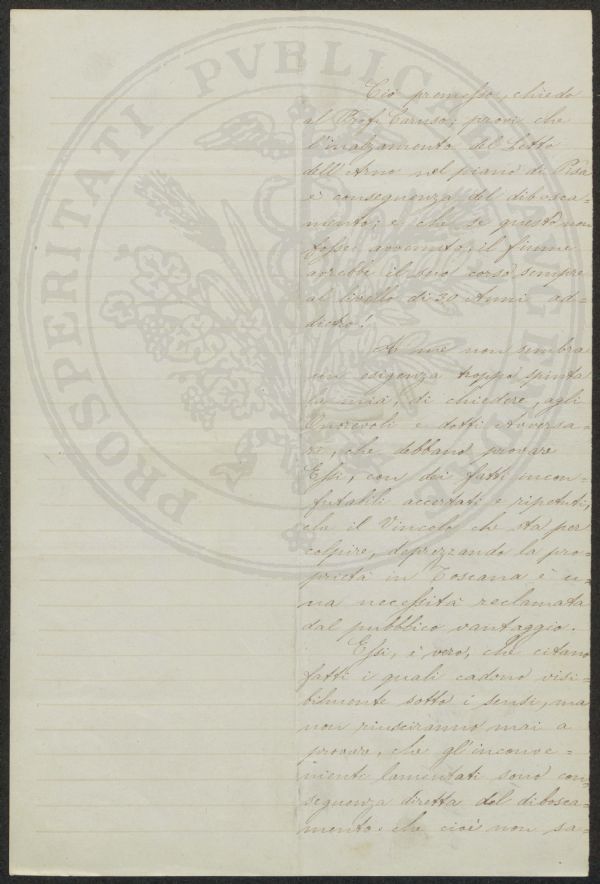 Ciò premesso, chiedo
al Prof. Caruso; provi che
l'inalzamento del Letto
dell'Arno nel piano di Pisa
è conseguenza del disbosca-
mento; e, che se questo non
fosse avvenuto, il fiume
avrebbe il suo corso sempre
al livello di 30 Anni ad-
dietro!
A me non sembra
un esigenza troppo spinta
la mia, di chiedere, agli
Onorevoli e dotti Avversa-
ri, che debbano provare
Essi, con dei fatti incon-
futabili accertati e ripetuti,
che il Vincolo che sta per
colpire, deprezzando la pro-
prietà in Toscana è u-
na necessità reclamata
dal pubblico vantaggio.
Essi, è vero, che citano
fatti i quali cadono visi-
bilmente sotto i sensi, ma
non riusciranno mai a
provare, che gl'inconve-
nienti lamentati sono con-
seguenza diretta del disbosca-
mento. che cioè non sa-
PROSPERITATI PVBLICAE AVGENDAE